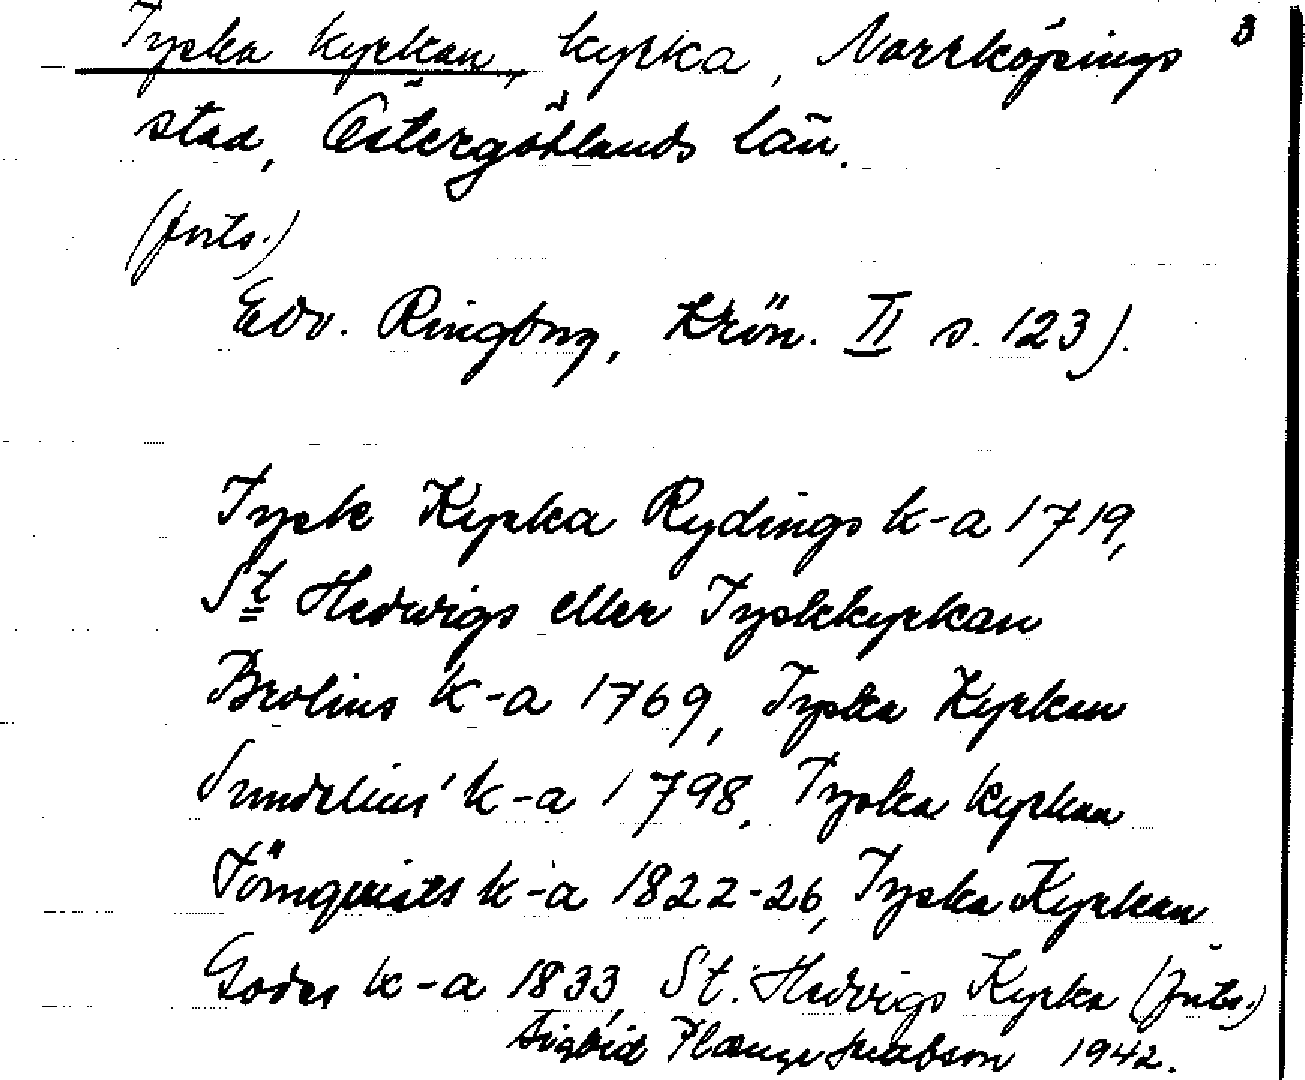 Tyska kyrkan, kyrka, Norrköpings 3
stad, Östergötlands län.
(forts.)
Edv. Ringborg, Krön. II s. 123).
Tysk Kyrka Rydings k-a 1719,
St Hedwigs eller Tyskkyrkan
Brolins k-a 1769, Tyska Kyrkan
Sundelius' k-a 1798, Tyska kyrkan
Törnquists k-a 1822-26, Tyska Kyrkan
Godes k-a 1833, St. Hedvigs Kyrka (forts.)
Sigbrid Plænge Jacobson 1942.